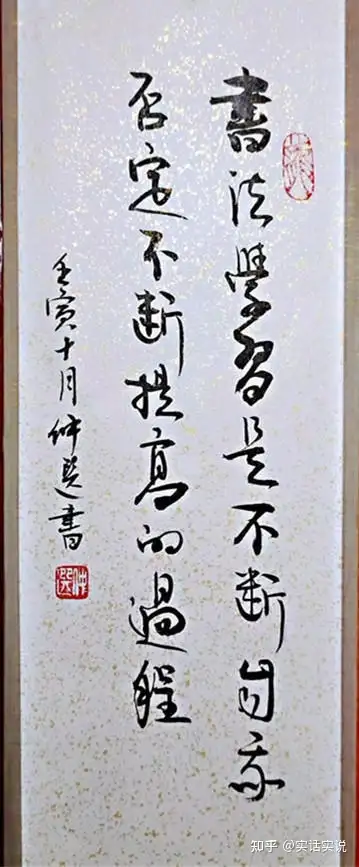 書法學習是不斷自我
否定不斷提高的過程
壬寅十月仲選書
仲選
知乎 @实话实说